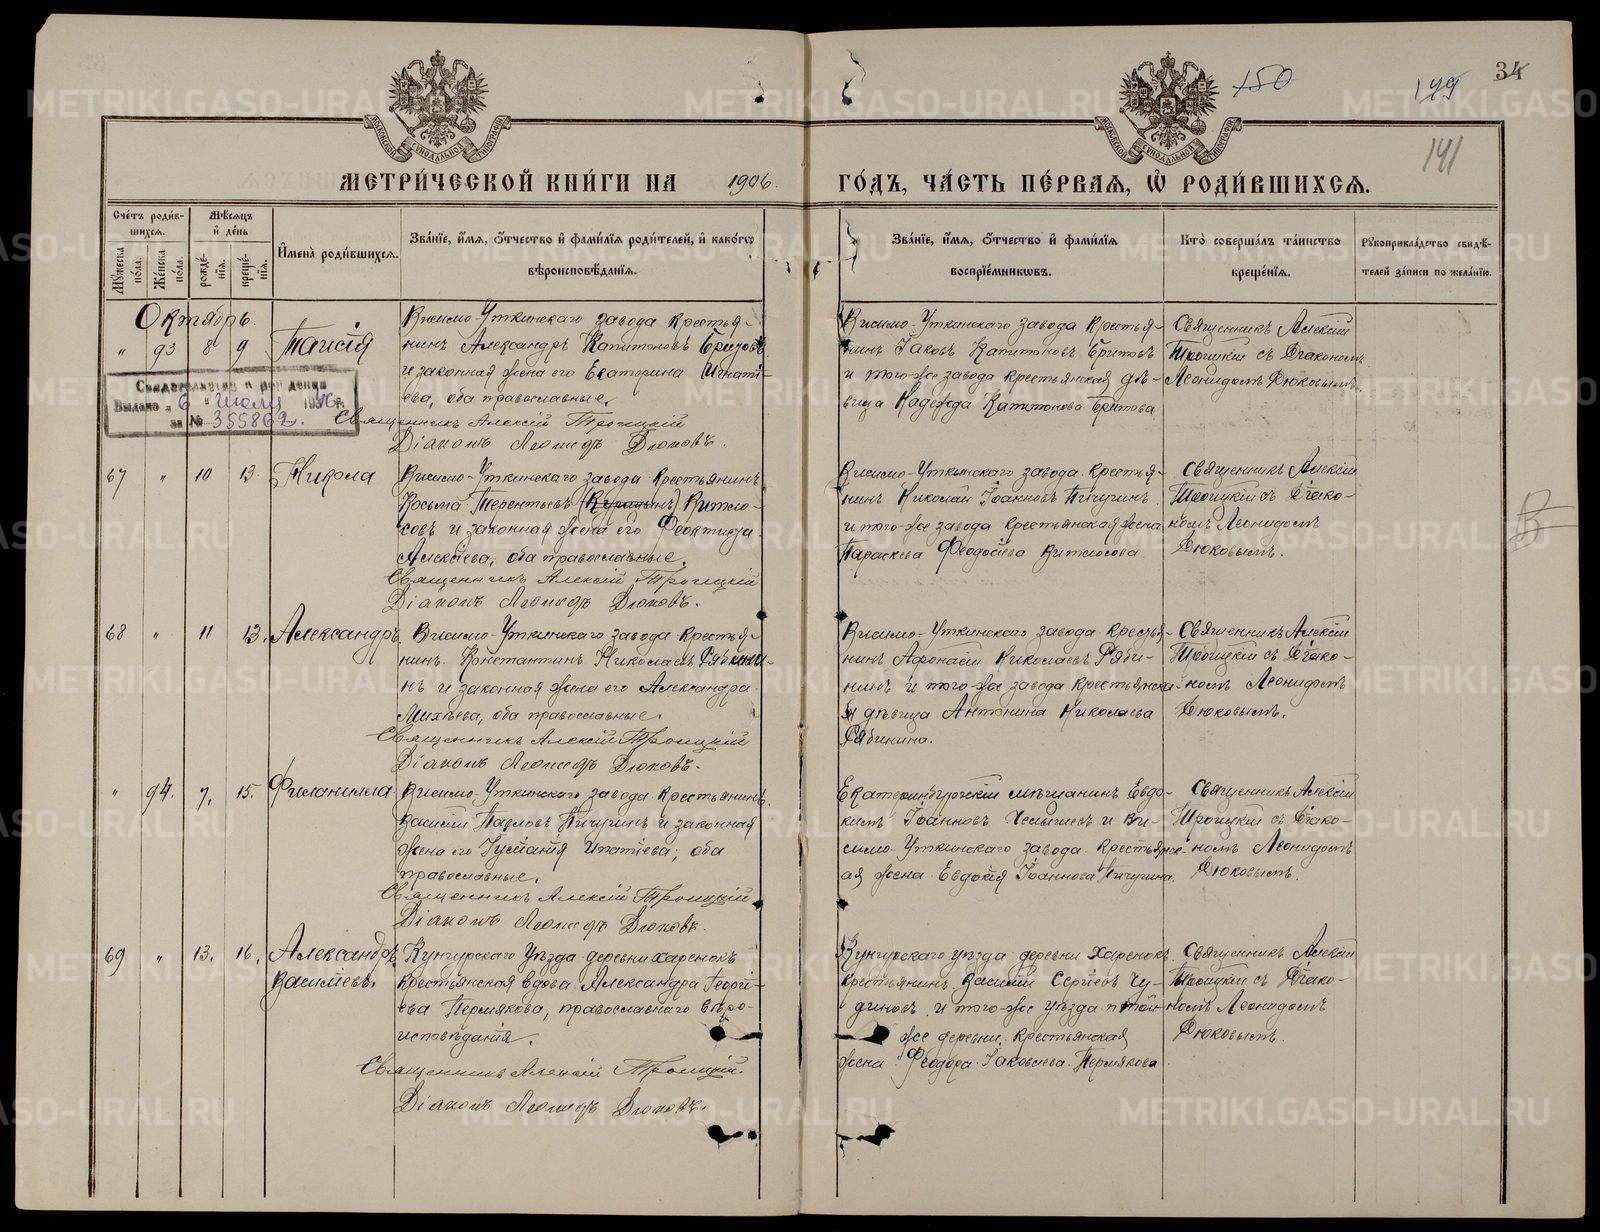 34
150
149
141
МЕТРИ́ЧЕСКОЙ КНИ́ГИ НА 1906. ГО́ДЪ, ЧА́СТЬ ПЕ́РВАЯ, Ѡ҆ РОДИ́ВШИХСЯ.
Сче́тъ роди́в-
шихся.
Мѣ́сяцъ
и҆ де́нь
Му́жеска по́ла.
Же́нска по́ла.
рожде́-
нія.
креще́-
нія.
И҆мена̀ роди́вшихся.
Зва́нїе, и҆́мя, ѻ҆́тчество и҆ фами́лїя роди́телей, и҆ како́гѡ
вѣроисповѣ́данїя.
Зва́нїе, и҆́мя, ѻ҆́тчество и҆ фами́лїя
воспрїе́мниковъ.
Кто̀ соверша́лъ та́инство
креще́нїя.
Рꙋкоприкла́дство свидѣ́-
телей за́писи по жела́нїю.
Октябрь.
" 93 8 9 Таисія
Висимо-Уткинскаго завода крестья-
нинъ Александръ Капитоновъ
и законная жена его Екатерина Игнатi-
ева, оба православные.
Священникъ Алексій Троицкій
Діаконъ Леонидъ Дюковъ.
Висимо-Уткинскаго завода крестья-
нинъ Іаковъ Капитоновъ Бритовъ
и того-же завода крестьянская дѣ-
вица Надежда Капитонова Бритова
Священникъ Алексій
Троицкій съ Діакономъ
Леонидомъ Дюковымъ.
Свидетельство о рождении
Выдано „6" июля 1946 г.
за № 355862.
67 " 10 13 Никола
Висимо-Уткинскаго завода крестьянинъ
Косьма Терентьевъ Витю-
совъ и законная жена его Феоктиста
Алексіева, оба православные.
Священникъ Алексій Троицкій
Діаконъ Леонидъ Дюковъ.
Висимо-Уткинскаго завода крестья-
нинъ Николай Іоанновъ Пичугинъ
и того-же завода крестьянская жена
Параскева Феодосіева
Священникъ Алексій
Троицкій съ Діако-
номъ Леонидомъ
Дюковымъ.
68 " 11 13. Александръ
Висимо-Уткинскаго завода крестья-
нинъ Константинъ Николаевъ Рябини-
нъ и законная жена его Александра
Михѣева, оба православные.
Священникъ Алексій Троицкій
Діаконъ Леонидъ Дюковъ.
Висимо-Уткинскаго завода крестья-
нинъ Афонасій Николаевъ Ряби-
нинъ и того-же завода крестьянска-
я дѣвица Антонина Николаева
Рябинина.
Священникъ Алексій
Троицкій съ Діако-
номъ Леонидомъ
Дюковымъ.
" 94. 7. 15. Филанилла
Висимо-Уткинскаго завода крестьянинъ
Василій Павловъ Пичугинъ и законная
жена его Іуліанія Ипатіева, оба
православные.
Священникъ Алексій Троицкій
Діаконъ Леонидъ Дюковъ.
Екатеринбургскій мѣщанинъ Евдо-
кимъ Іоанновъ и Ви-
симо-Уткинскаго завода крестьянск-
ая жена Евдокія Іоаннова Пичугина.
Священникъ Алексій
Троицкій съ Діако-
номъ Леонидомъ
Дюковымъ.
69 " 13. 16. Александръ
Васильевъ.
Кунгурскаго Уѣзда деревни Харенокъ
крестьянская вдова Александра Георгі-
ева Пермякова, православнаго вѣро-
исповѣданія.
Священникъ Алексій Троицкій.
Діаконъ Леонидъ Дюковъ.
Кунгурскаго уѣзда деревни Харенокъ
крестьянинъ Василій Сергіевъ Чу-
диновъ и того-же уѣзда и той-
же деревни крестьянская
жена Феодора Іаковлева Пермякова
Священникъ Алексій
Троицкій съ Діако-
номъ Леонидомъ
Дюковымъ.
METRIKI.GASO-URAL.RU